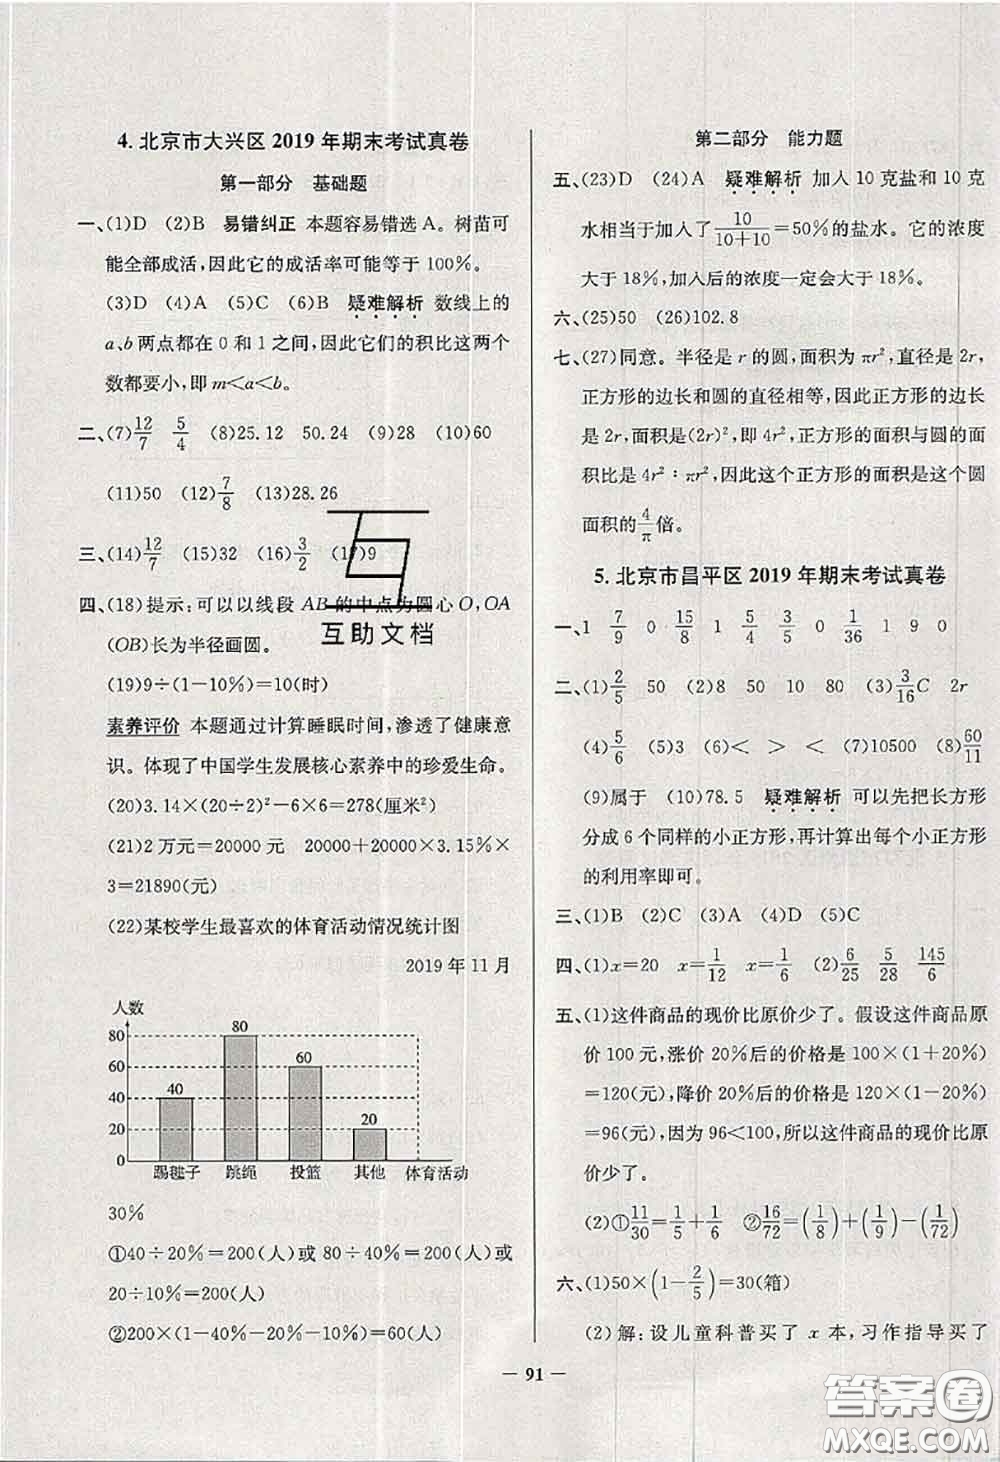 4. 北京市大兴区 2019 年期末考试真卷
第一部分 基础题
一、(1)D (2)B 易错纠正 本题容易错选 A。树苗可
能全部成活，因此它的成活率可能等于 100%。
(3)D (4)A (5)C (6)B 疑难解析 数线上的
a、b 两点都在 0 和 1 之间，因此它们的积比这两个
数都要小，即 m<a<b。
二、(7)12/7 5/4 (8)25.12 50.24 (9)28 (10)60
(11)50 (12)7/8 (13)28.26
三、(14)12/7 (15)32 (16)3/2 (17)9
四、(18)提示：可以以线段 AB 的中点为圆心 O，OA
(OB)长为半径画圆。
互助文档
(19)9÷(1-10%)=10(时)
素养评价 本题通过计算睡眠时间，渗透了健康意
识。体现了中国学生发展核心素养中的珍爱生命。
(20)3.14×(20÷2)²-6×6=278(厘米²)
(21)2 万元=20000 元 20000+20000×3.15%×
3=21890(元)
(22)某校学生最喜欢的体育活动情况统计图
2019 年 11 月
人数
80
60
40
20
0
40
80
60
20
踢毽子 跳绳 投篮 其他 体育活动
30%
①40÷20%=200(人)或 80÷40%=200(人)或
20÷10%=200(人)
②200×(1-40%-20%-10%)=60(人)
第二部分 能力题
五、(23)D (24)A 疑难解析 加入 10 克盐和 10 克
水相当于加入了10/(10+10)=50%的盐水。它的浓度
大于 18%，加入后的浓度一定会大于 18%。
六、(25)50 (26)102.8
七、(27)同意。半径是 r 的圆，面积为 πr²，直径是 2r，
正方形的边长和圆的直径相等，因此正方形的边长
是 2r，面积是(2r)²，即 4r²，正方形的面积与圆的面
积比是 4r²：πr²，因此这个正方形的面积是这个圆
面积的4/π倍。
5. 北京市昌平区 2019 年期末考试真卷
一、1 7/9 0 15/8 1 5/4 3/5 0 1/36 1 9 0
二、(1)2/5 50 (2)8 50 10 80 (3)3/16C 2r
(4)5/6 (5)3 (6)< > < (7)10500 (8)60/11
(9)属于 (10)78.5 疑难解析 可以先把长方形
分成 6 个同样的小正方形，再计算出每个小正方形
的利用率即可。
三、(1)B (2)C (3)A (4)D (5)C
四、(1)x=20 x=1/12 x=1/6 (2)6/25 5/28 145/6
五、(1)这件商品的现价比原价少了。假设这件商品原
价 100 元，涨价 20%后的价格是 100×(1+20%)
=120(元)，降价 20%后的价格是 120×(1-20%)
=96(元)，因为 96<100，所以这件商品的现价比原
价少了。
(2)①11/30=1/5+1/6 ②16/72=(1/8)+(1/9)-(1/72)
六、(1)50×(1-2/5)=30(箱)
(2)解：设儿童科普买了 x 本，习作指导买了
— 91 —
答案圈
MXQE.COM